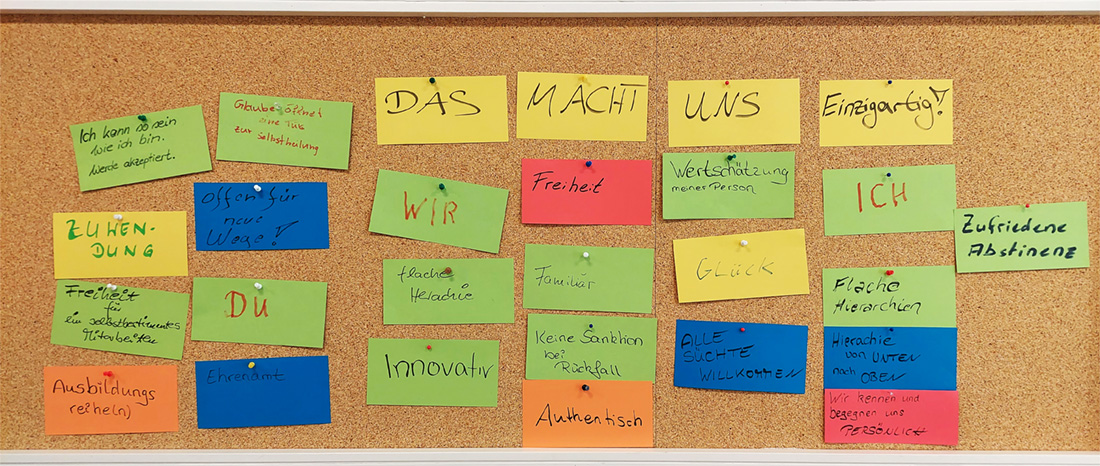 DAS
MACHT
UNS
Einzigartig!
Ich kann so sein
wie ich bin.
Werde akzeptiert.
Glaube öffnet
eine Tür
zur Selbstheilung
ZUWEN-
DUNG
Offen für
neue
Wege!
Freiheit
für
ein selbstbestimmtes
Mitarbeiten
DU
Ausbildungs
reihe(n)
Ehrenamt
WIR
flache
Herachie
Innovativ
Freiheit
Familiär
Keine Sanktion
bei
Rückfall
Authentisch
Wertschätzung
meiner Person
GLÜCK
ALLE
SÜCHTE
WILLKOMMEN
ICH
Flache
Hierarchien
Hierachie
von UNTEN
nach OBEN
Wir kennen und
begegnen uns
PERSÖNLICH
Zufriedene
Abstinenz